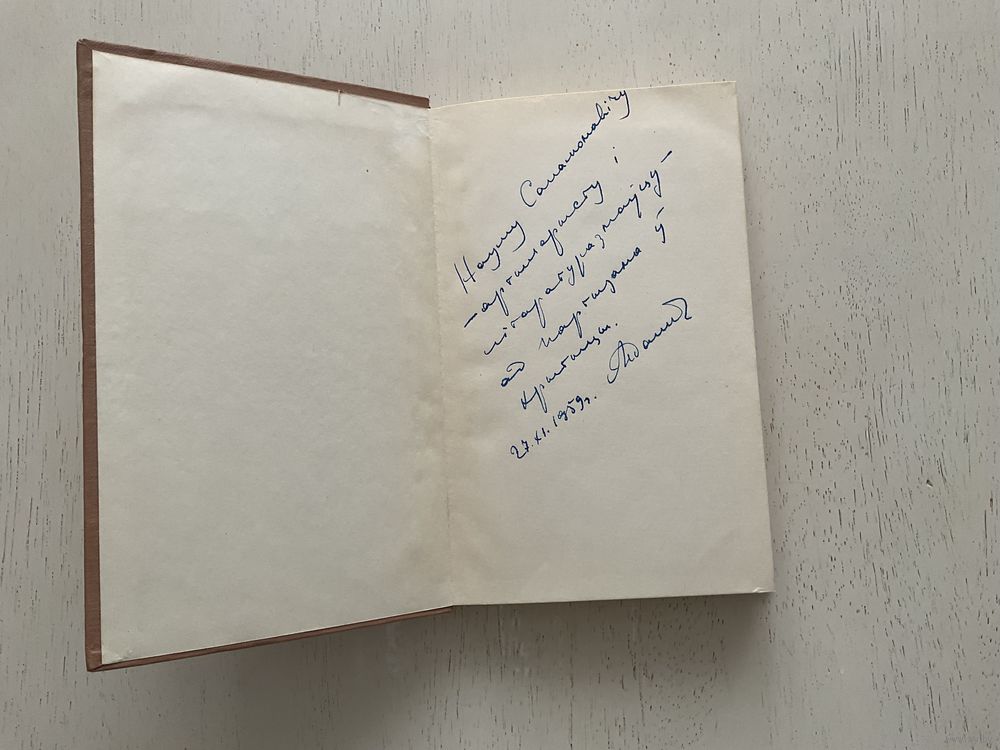 Навуму Саламонавічу
– артылерысту і
літаратуразнаўцу –
ад партызана ў
крытыцы.
27.XI.1959г. Адамовіч